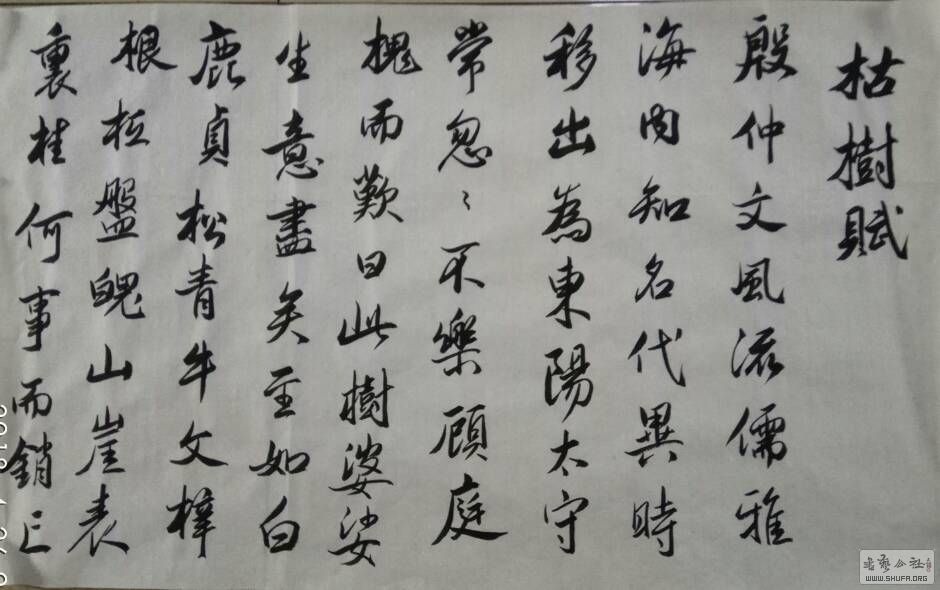 枯樹賦
殷仲文風流儒雅
海内知名代異時
移出為東陽太守
常忽〻不樂顧庭
槐而歎曰此樹婆娑
生意盡矣至如白
鹿貞松青牛文梓
根柢盤魄山崖表
裏桂何事而銷亡
书艺公社
WWW.SHUFA.ORG